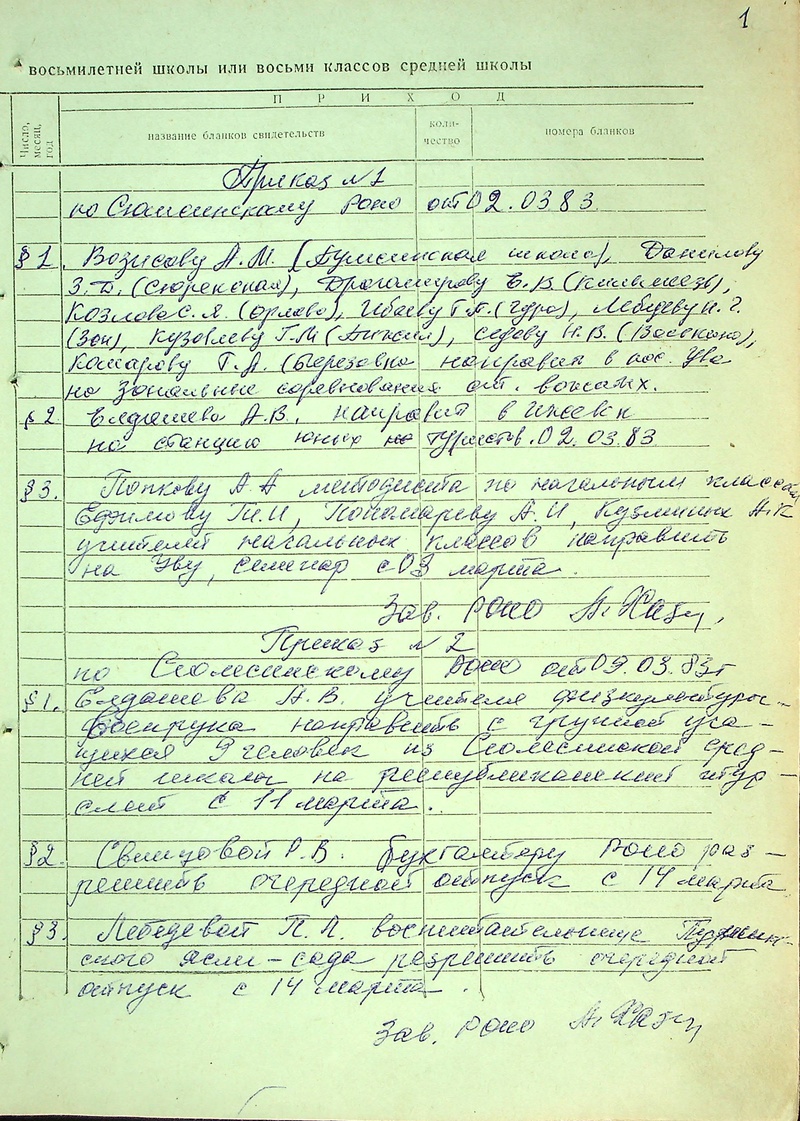 1
восьмилетней школы или восьми классов средней школы
ПРИХОД
Число, месяц, год
название бланков свидетельств
коли-
чество
номера бланков
Приказ №1
по Сюмсинскому Роно от 02.03 83
§ 1. Возисову А.М. школа), Данилову
З.Д. (Сюрекская), Драгомирову Е.В. (Кильмезь),
Козлова С.Я. (Орлово), Ибаеву Г.П. (Гура), Лебедеву Н.Г.
(Зон), Кузовлеву Г.М. Седову Н.В. (Васькино),
Комарову Г.А. (Березовка направит в пос. Ува
на зональные соревнования вожатых.
§ 2 Елдашева А.В. направит в Ижевск
на станцию юных туристов. 02.03.83
§3. Попкову А А методиста по начальным классам
Ефимову Т.И, Пономареву А.И, Кузьминых А.К
учителей начальных классов направить
на Уву, семинар с 03 марта.
Зав. РОНО
Приказ № 2
по Сюмсинскому Роно от 09.03.83г
§1. Елдашева А.В. учителя физкультуры-
военрука направить с группой уча-
щихся 9 человек из Сюмсинской сред-
ней школы на республиканский тур-
слет с 11 марта.
§2. Свинцовой Р.В. бухгалтеру Роно раз-
решить очередной отпуск с 14 марта
§3. Лебедевой П.Л. воспитательнице
ского ясли-сада разрешить очередной
отпуск с 14 марта.
Зав. РОНО